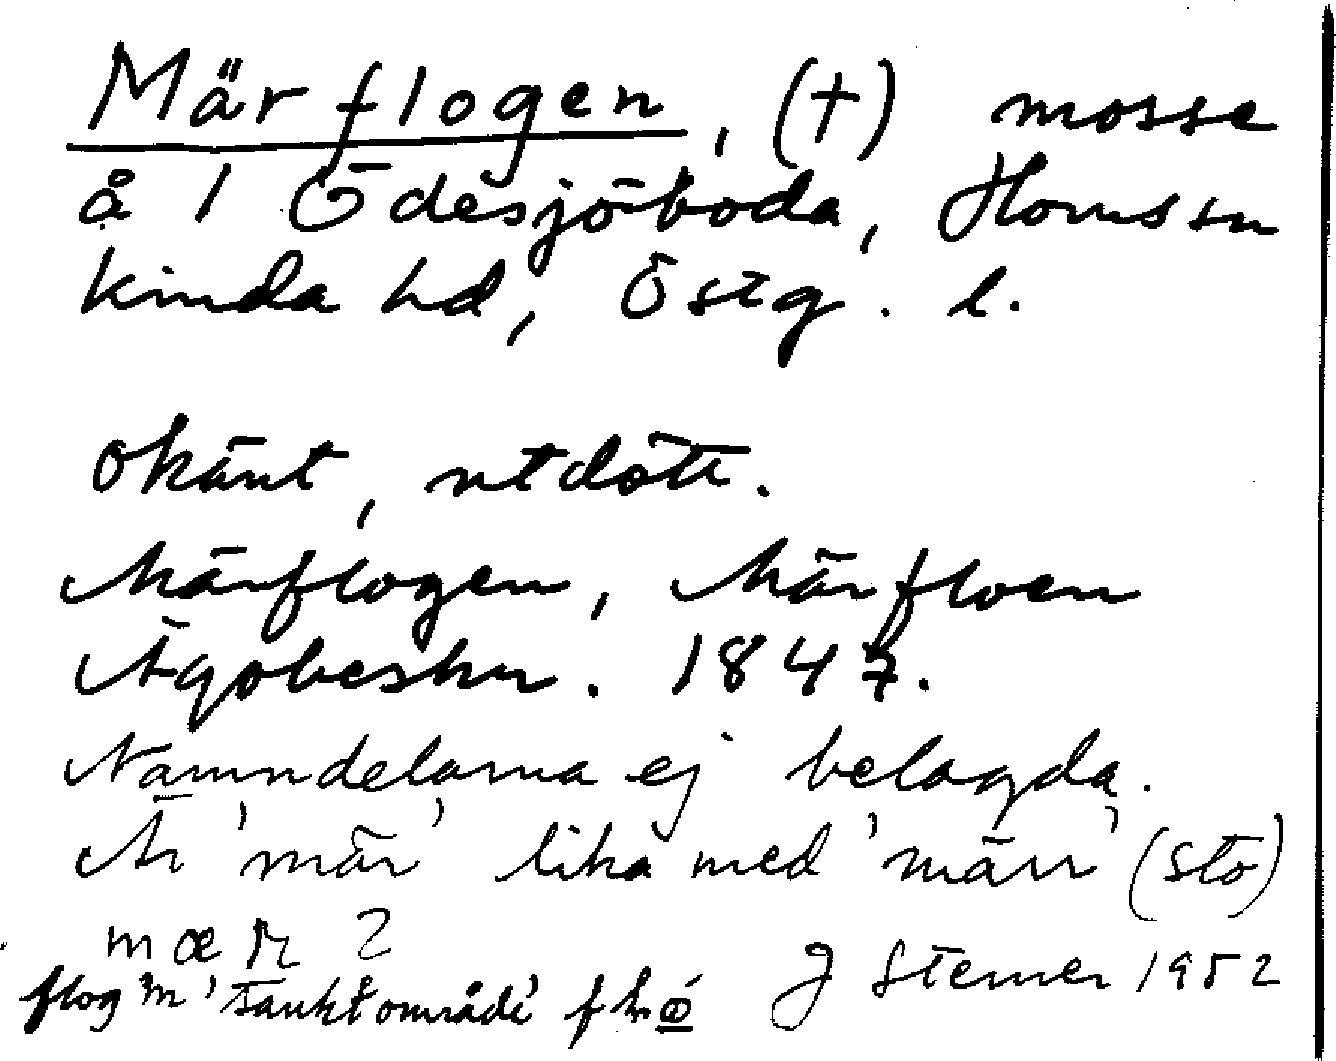 Märflogen, (†) mosse
å 1 Ödesjöboda, Horns sn
kinda hd, Östg. l.
okänt, utdött.
Märflogen, Märfloen
Ägobeskr. 1847.
Namndelarna ej belagda.
Är 'mär' lika med 'märr' (sto)
mær ?
J Sterner 1952
flog m 'sankt område'